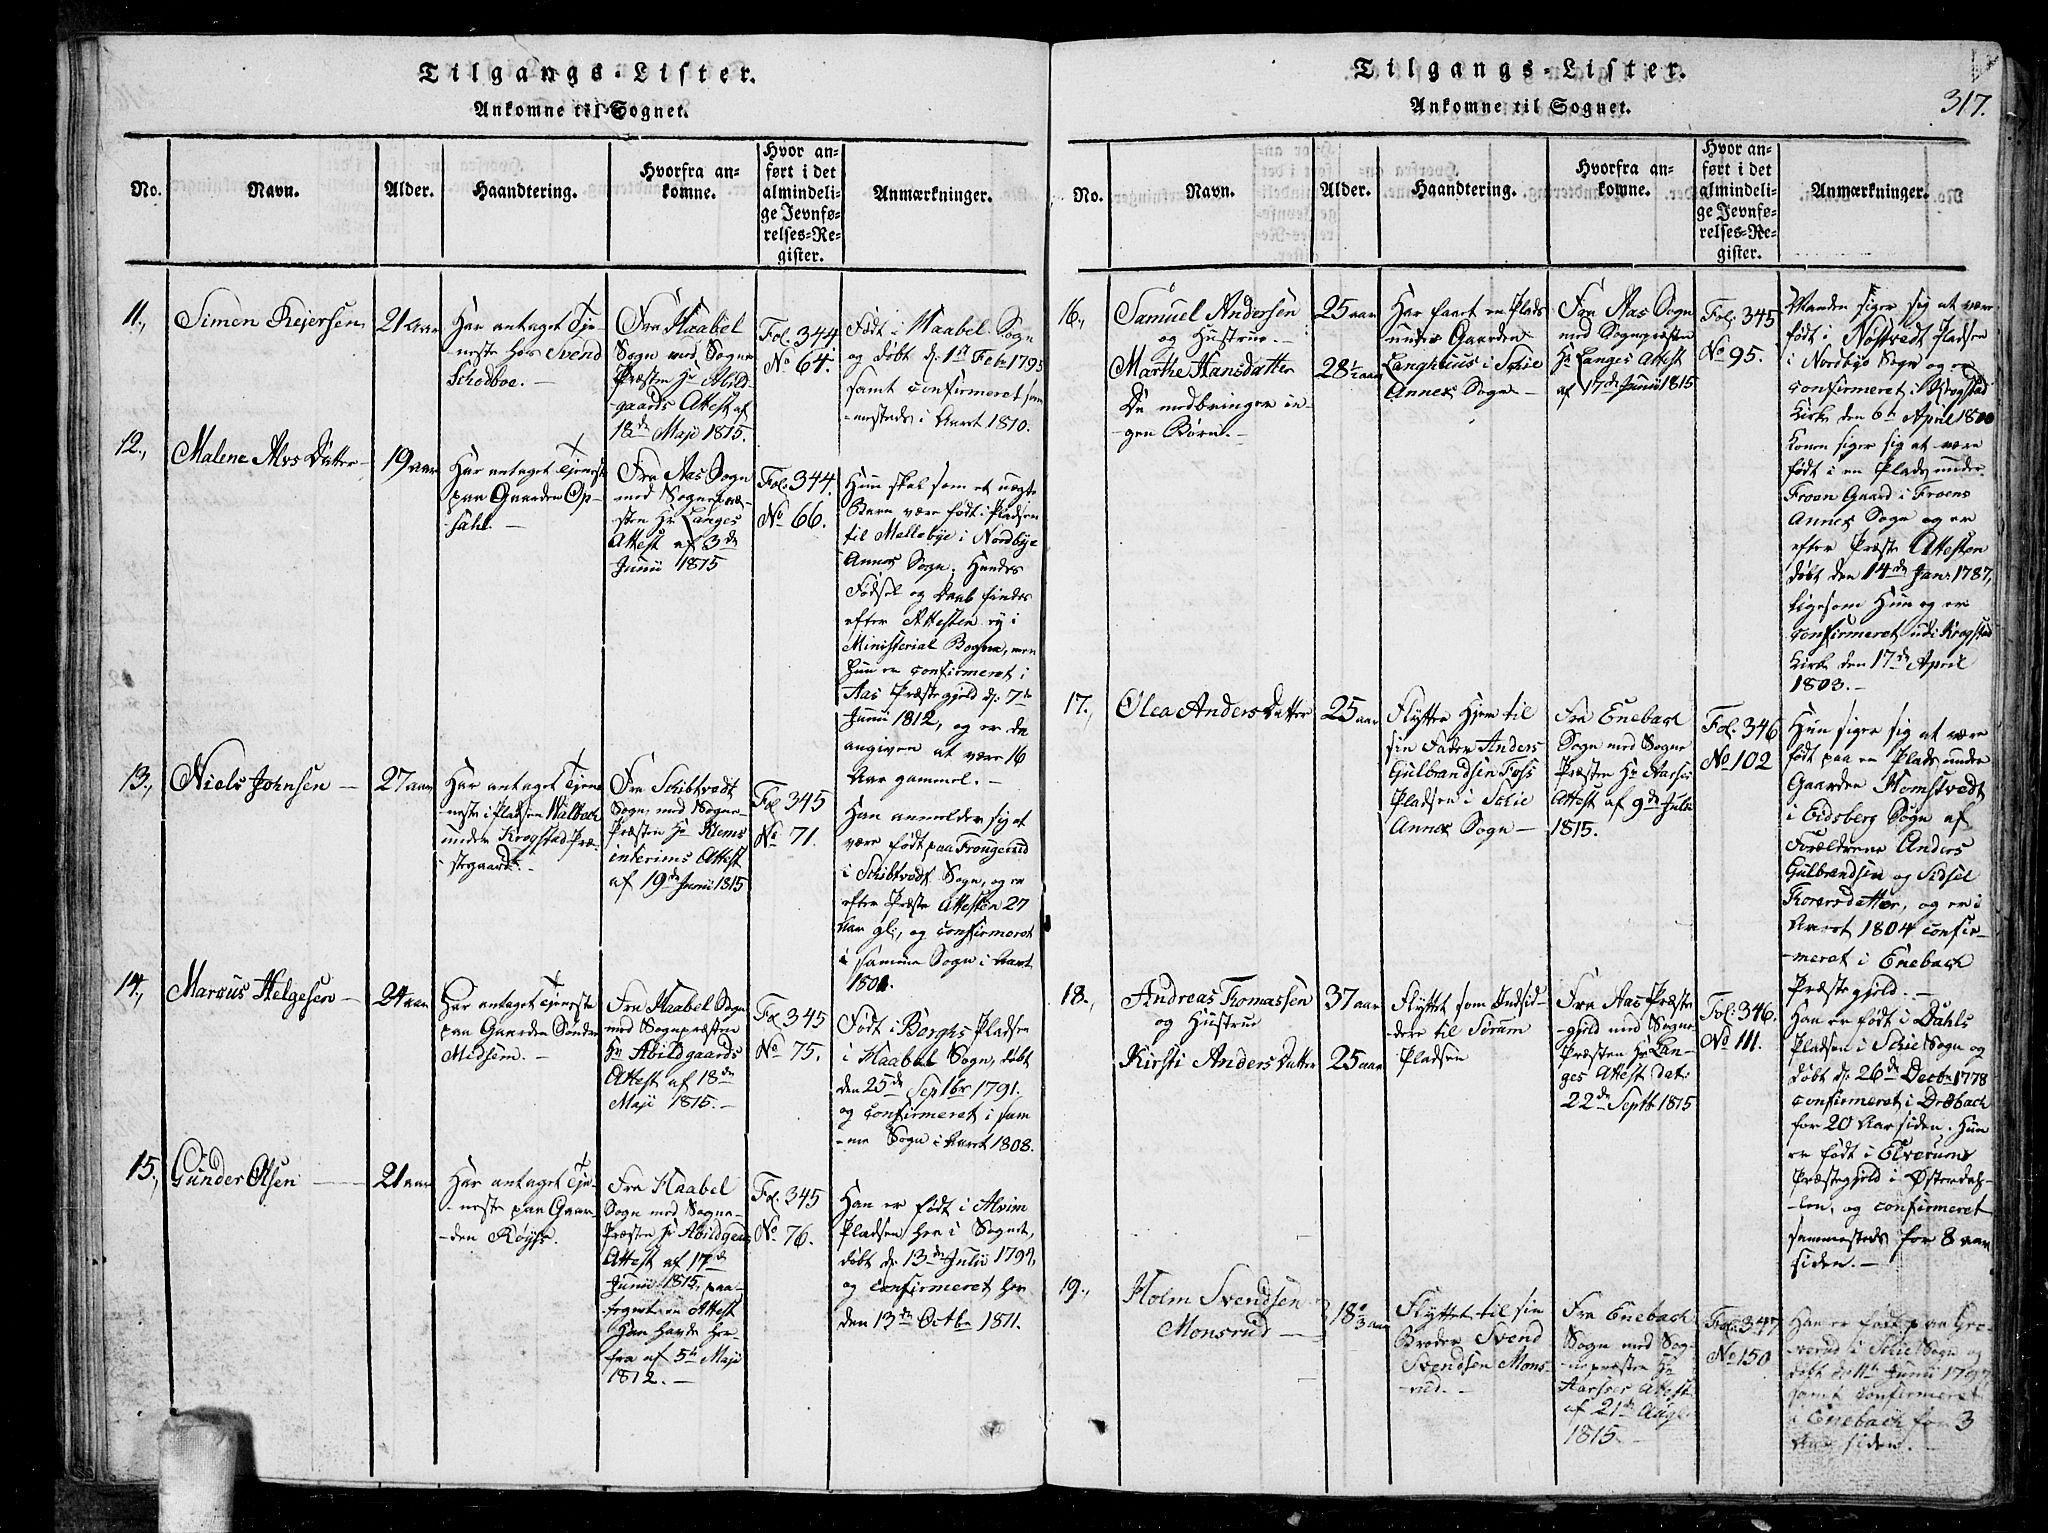 Tilgangs-Lister.
Ankomne til Sognet.
No.
Navn.
Alder.
Haandtering.
Hvorfra an-
komne.
Hvor an-
ført i det
almindeli-
ge Jevnfø-
relses-Re-
gister.
Anmærkninger.
11.,
Simen Rejersen,
21 aar
Har antaget Tje-
neste hos Svend
Schodboe. -
Fra Haabel
Sogn med Sogne
Præsten Hr Abild-
gaards Attest af
18de Maji 1815.
Fol. 344
No 64.
Født i Haabel Sogn
og døbt d: 1ste Febr 1795
samt confirmeret sam-
mesteds i Aaret 1810.
12.,
Malene Alvs Datter -
19 aar
Har antaget Tjeneste
paa Gaarden Op-
sahl. -
Fra Aas Sogn
med Sognepræ-
sten Hr Langes
Attest af 3de
Junii 1815
Fol. 344.
No 66.
Hun skal som et uægte
Barn være født i Pladsen
til Mellebye i Nordbye
Annex Sogn. Hendes
Fødsel og Daab findes
efter Attesten ej i
Ministerial Bogen, men
hun er confirmeret i
Aas Præstegjeld d: 7de
Junii 1812, og er da
angiven at være 16
Aar gammel. -
13.,
Niels Johnsen -
27 aar
Har antaget Tjene-
neste i Pladsen Walbach
under Krogstad Præ-
stegaard. -
Fra Schibtvedt
Sogn, med Sogne-
Præsten Hr Klems
interims Attest
af 19de Junii 1815
Fol. 345
No 71.
Han anmelder sig at
være født paa Frougerud
i Schibtvedt Sogn, og er
efter Præste Attesten 27
Aar gl:, og confirmeret
i samme Sogn i Aaret
1501.
14.,
Marcus Helgesen -
24 aar
Har antaget Tjeneste
paa Gaarden Søndre
Midsem. -
Fra Haabel Sogn
med Sognepræsten
Hr Abildgaards
Attest af 18de
Maji 1815. -
Fol. 345
No 75.
Født i Borghs Pladsen
i Haabel Sogn, døbt
den 25de Septbr 1791.
og confirmeret i sam-
me Sogn i Aaret 1808.
15.,
Gunder Olsen -
21 aar
Har antaget Tje-
neste paa Gaar-
den Røyse.
Fra Haabel
Sogn med Sogne-
Præsten Hr Abildgaards
Attest af 17de
Junii 1815, paa-
tegnet en Attest
Han havde her-
fra af 5te Maji
1812. -
Fol. 345
No 76.
Han er født i Alvim
Pladsen her i Sognet,
døbt d: 13de Julii 1794,
og confirmeret her
den 13de Octbr 1811.
Tilgangs-Lister.
Ankomne til Sognet.
317.
No.
Navn.
Alder.
Haandtering.
Hvorfra an-
komne.
Hvor an-
ført i det
almindeli-
ge Jevnfø-
relses-Re-
gister.
Anmærkninger.
16.,
Samuel Andersen
og Hustrue. -
Marthe Hansdatter
De medbringer in-
gen Børn. -
25 aar
28½ aar
Har faaet en Plads
under Gaarden
Langhuus i Schie
Annex Sogn -
Fra Aas Sogn
med Sognepræsten
Hr Langes Attest
af 17de Junii 1815
Fol. 345
No 95.
Manden siger sig at være
født i Nøstvedt Pladsen
i Nordbye Sogn og er
confirmeret i Krogstad
Kirke den 6te April 1800
Konen siger sig at være
født i en Plads under
Froen Gaard i Froens
Annex Sogn og er
efter Præste Attesten
døbt den 14de Janr 1787,
ligesom Hun og er
confirmeret udi Krogstad
Kirke den 17de April
1803. -
17.,
Olea Anders Datter
25 aar
Flytter hjem til
sin Fader Anders
Gulbrandsen Foss
Pladsen i Schie
Annex Sogn -
Fra Enebach
Sogn med Sogne
Præsten Hr Aarses
Attest af 9de Julii
1815.
Fol. 346
No 102
Hun siger sig at være
født paa en Plads under
Gaarden Homstvedt
i Eidsberg Sogn af
Forældrene Anders
Gulbrandsen og Sidsel
Torersdatter, og er i
Aaret 1804 confir-
meret i Enebach
Præstegjeld. -
18.,
Andreas Thomassen
og Hustrue
Kirsti Anders Datter
37 aar
25 aar
Flyttet som Indsid-
dere til Sørum
Pladsen
Fra Aas Præste-
gjeld med Sogne-
Præsten Hr Lan-
ges Attest dat:
22de Septb. 1815
Fol. 346.
No 111.
Han er født i Dahls
Pladsen i Schie Sogn og
døbt d: 26de Decbr 1778
confirmeret i Drøbach
for 20 Aar siden. Hun
er født i Elverums
Præstegjeld i Østerdah-
len, og confirmeret
sammesteds for 8 aar
siden. -
19.,
Holm Svendsen
Monsrud -
18 aar
Flyttet til sin
Broder Svend
Svendsen Mons-
rud. -
Fra Enebach
Sogn med Sog-
nepræsten Hr
Aarses Attest
af 21de Augl.
1815. -
Fol. 347
No 150
Han er født paa
i Schie Sogn og
døbt d: 11te Junii 1797
samt confirmeret
i Enebach for 3
Aar siden. -